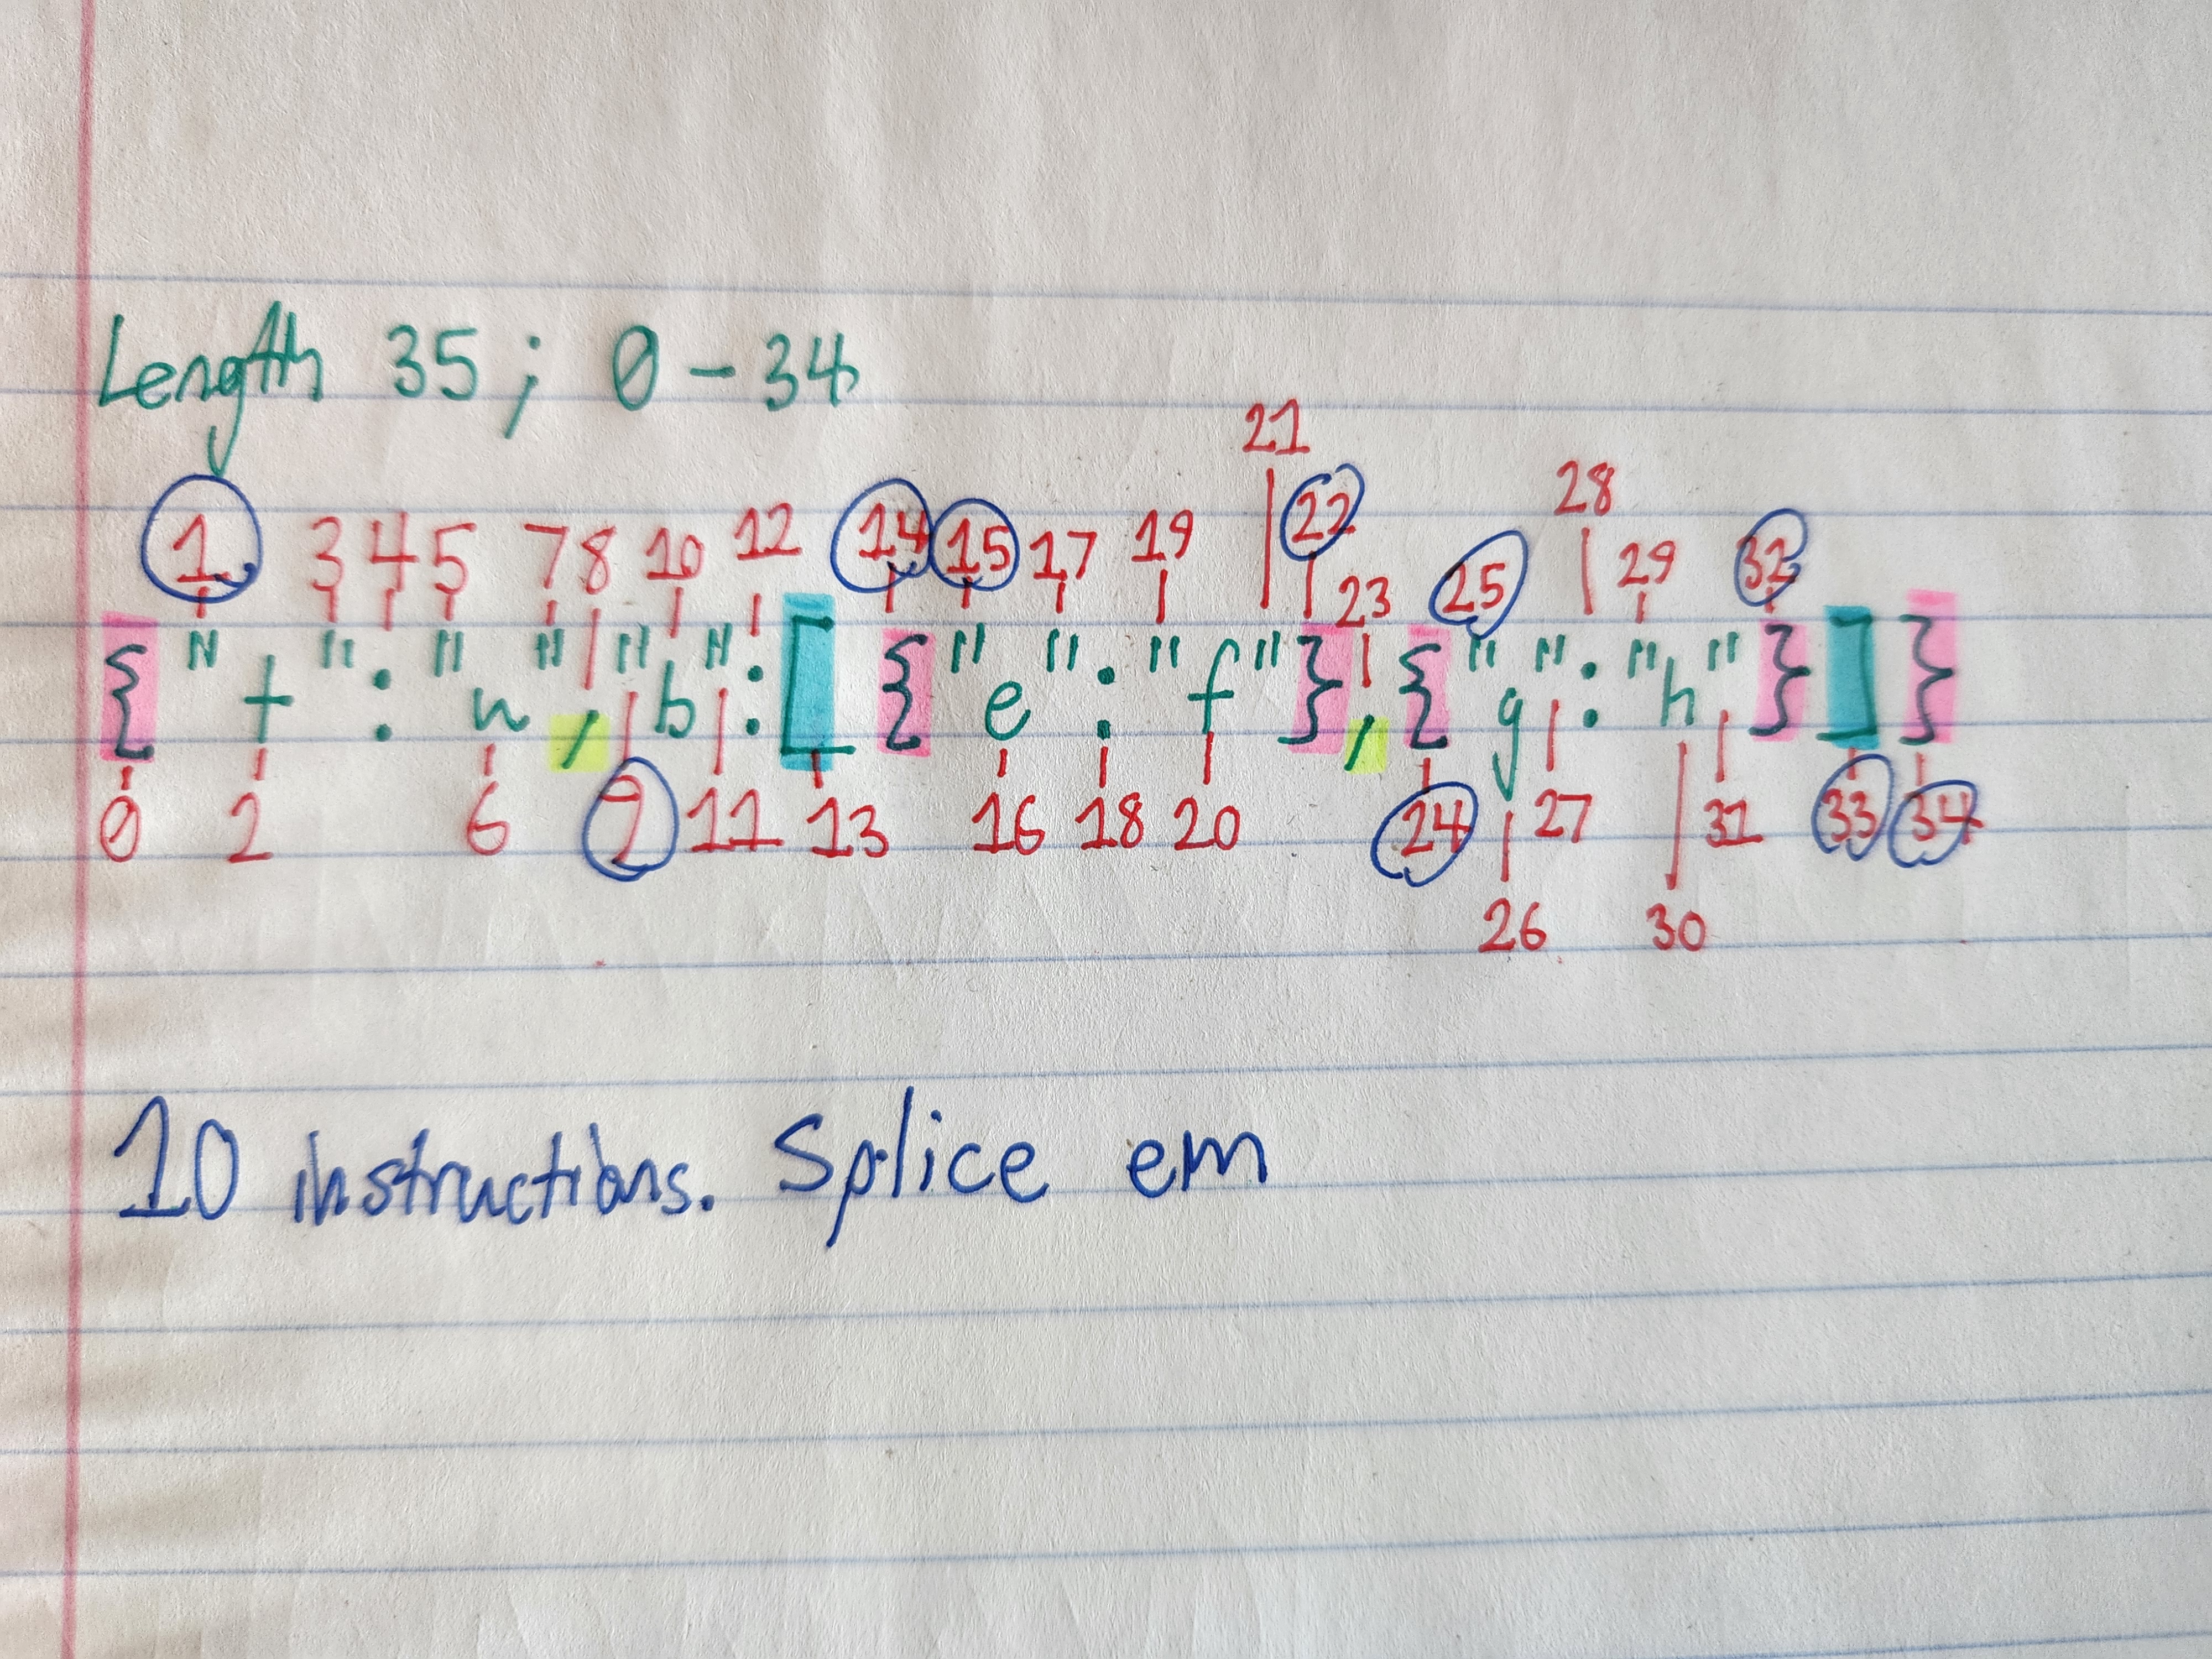 Length 35; 0-34
21
28
1 3 4 5 7 8 10 12 14 15 17 19 22 23 25 29 32
{"t":"w","b":[{"e":"f"},{"g":"h"}]}
0 2 6 9 11 13 16 18 20 24 27 31 33 34
26 30
10 instructions. Splice em